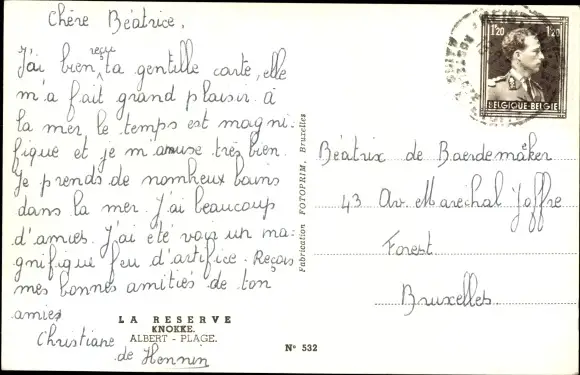 Chère Béatrice,
J'ai bien reçu ta gentille carte, elle
m'a fait grand plaisir. à
la mer, le temps est magni-
fique et je m'amuse très bien.
Je prends de nombreux bains
dans la mer. J'ai beaucoup
d'amies. J'ai été voir un ma-
gnifique feu d'artifice. Reçois
mes bonnes amitiés de ton
amies
Christiane
de Hennin
LA RESERVE
KNOKKE.
ALBERT - PLAGE.
N° 532
Fabrication FOTOPRIM, Bruxelles
1F20 1F20
BELGIQUE·BELGIE
Béatrix de Baerdemaeker
43 Av. Maréchal Joffre
Forest.
Bruxelles.